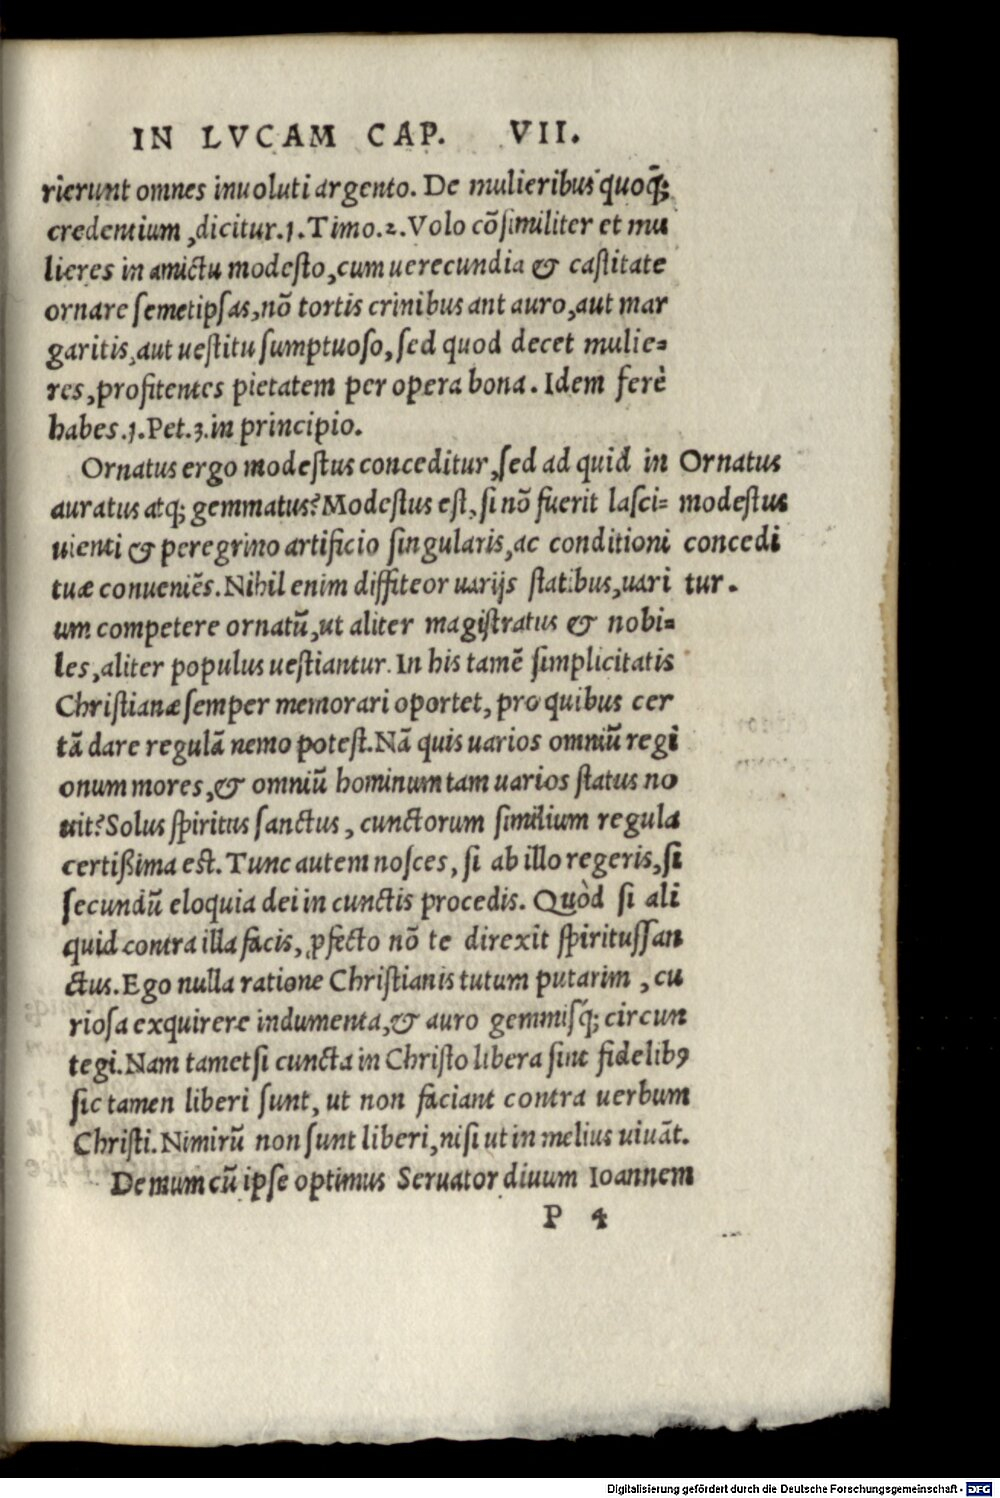 IN LVCAM CAP. VII.
rierunt omnes inuoluti argento. De mulieribus quoq̃;
credentium, dicitur. 1. Timo. 2. Volo cõsimiliter et mu
lieres in amictu modesto, cum uerecundia & castitate
ornare semetipsas, nõ tortis crinibus ant auro, aut mar
garitis, aut uestitu sumptuoso, sed quod decet mulie=
res, profitentes pietatem per opera bona. Idem ferè
habes. 1. Pet. 3. in principio.
Ornatus ergo modestus conceditur, sed ad quid in
auratus atq; gemmatus? Modestus est, si nõ fuerit lasci=
uienti & peregrino artificio singularis, ac conditioni
tuæ conueniẽs. Nihil enim diffiteor uarijs statibus, uari
um competere ornatũ, ut aliter magistratus & nobi=
les, aliter populus uestiantur. In his tamẽ simplicitatis
Christianæ semper memorari oportet, pro quibus cer
tã dare regulã nemo potest. Nã quis uarios omniũ regi
onum mores, & omniũ hominum tam uarios status no
uit? Solus spiritus sanctus, cunctorum similium regula
certißima est. Tunc autem nosces, si ab illo regeris, si
secundũ eloquia dei in cunctis procedis. Quòd si ali
quid contra illa facis, ꝓfecto nõ te direxit spiritussan
ctus. Ego nulla ratione Christianis tutum putarim, cu
riosa exquirere indumenta, & auro gemmisq́; circun
tegi. Nam tametsi cuncta in Christo libera sint fidelibꝰ
sic tamen liberi sunt, ut non faciant contra uerbum
Christi. Nimirũ non sunt liberi, nisi ut in melius uiuãt.
Demum cũ ipse optimus Seruator diuum Ioannem
P 4
Ornatus
modestus
concedi
tur.
Digitalisierung gefördert durch die Deutsche Forschungsgemeinschaft - DFG